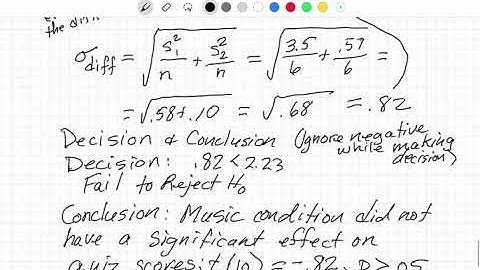 the dist
σdiff = √(S₁²/n + S₂²/n) = √(3.5/6 + .57/6) =
= √.58+.10 = √.68 = .82
Decision & Conclusion (Ignore negative
while making
decision)
Decision: .82 < 2.23
Fail to Reject H₀
Conclusion: Music condition did not
have a significant effect on
quiz scores: t(10) = -.82, p > .05